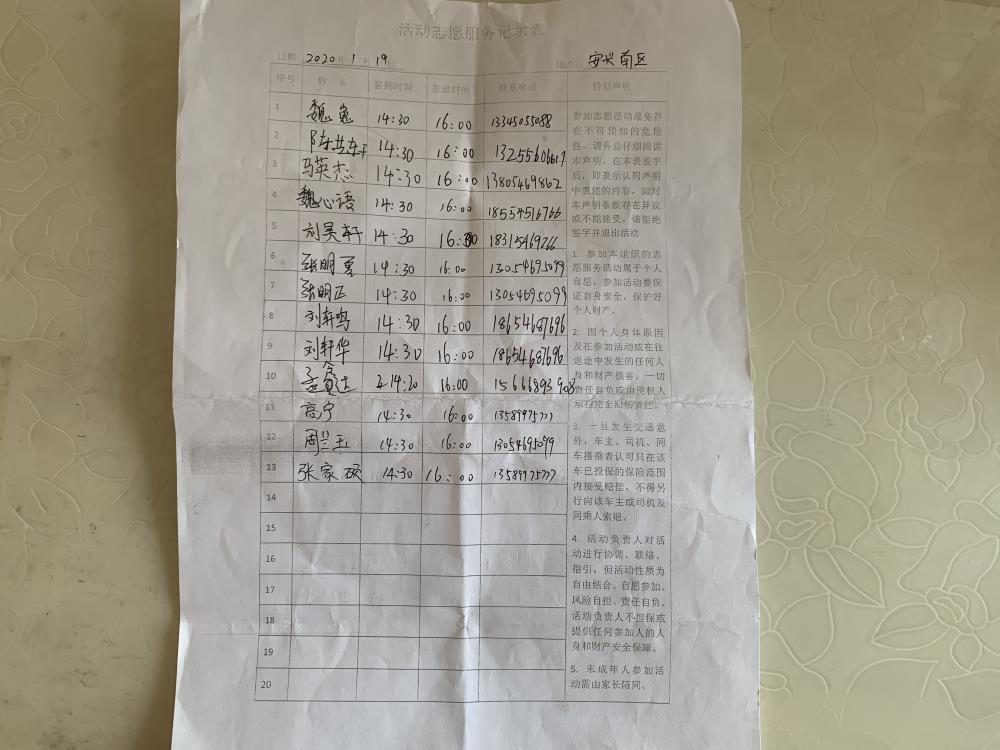 活动志愿服务记录表
日期:2020年1月19日 地点:安兴南区
序号 姓 名 签到时间 签退时间 联系电话 特别声明
1 魏 14:30 16:00 13345055088
2 陈 14:30 16:00
3 马英杰 14:30 16:00 13805469862
4 魏心语 14:30 16:00 18554516766
5 刘昊轩 14:30 16:30 18315469266
6 张明 14:30 16:00 13054695099
7 张明正 14:30 16:00 13054695099
8 刘轩鸣 14:30 16:00 18654687696
9 刘轩华 14:30 16:00 18654687696
10 孟 14:30 16:00 15666893908
11 高宁 14:30 16:00 13589975777
12 周兰玉 14:30 16:00 13054695099
13 张家硕 14:30 16:00 13589975777
14
15
16
17
18
19
20
参加志愿活动难免存
在不可预知的危险
性,请务必仔细阅读
本声明,在本表签字
后,即表示认同声明
中表述的内容,如对
本声明条款存在异议
或不能接受,请拒绝
签字并退出活动
1. 参加本组织的志
愿服务活动属于个人
自愿,参加活动要保
证自身安全,保护好
个人财产。
2. 因个人身体原因
及在参加活动或在往
返途中发生的任何人
身和财产损害,一切
责任自负或由授权人
承担完全赔偿责任。
3. 一旦发生交通意
外,车主、司机、同
车搭乘者认可只在该
车已投保的保险范围
内接受赔偿,不得另
行向该车主或司机及
同乘人索赔。
4. 活动负责人对活
动进行协调、联络、
指引,但活动性质为
自由结合、自愿参加、
风险自担、责任自负。
活动负责人不担保或
提供任何参加人的人
身和财产安全保障。
5. 未成年人参加活
动需由家长陪同。